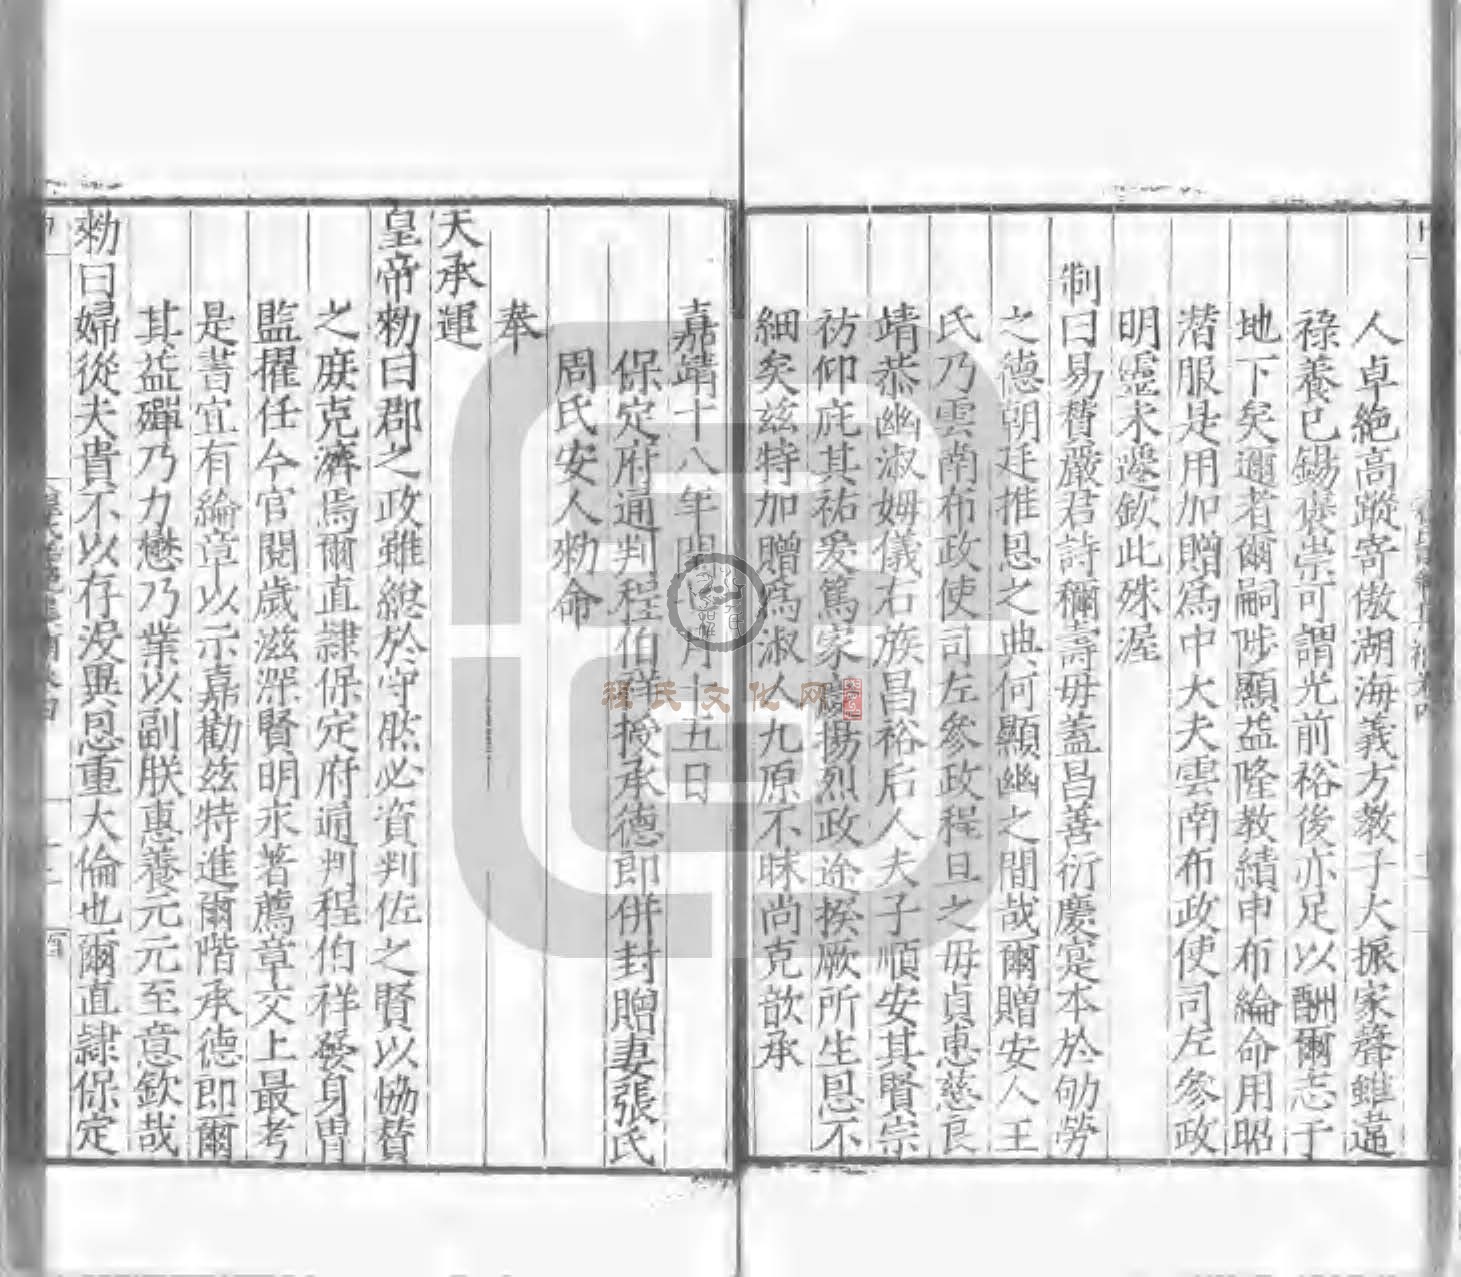 人卓絶高蹤寄傲湖海義方教子大振家聲雖違
祿養已錫褒崇可謂光前裕後亦足以酬爾志于
地下矣邇者爾嗣陟顯益隆教績申布綸命用昭
潛服是用加贈爲中大夫雲南布政使司左參政
明靈未遠欽此殊渥
制曰易贊嚴君詩稱壽毋蓋昌善衍慶寔本於劬勞
之德朝廷推恩之典何顯幽之間哉爾贈安人王
氏乃雲南布政使司左參政程旦之毋貞惠慈良
靖恭幽淑姆儀右族昌裕后人夫子順安其賢宗
祊仰庇其祐爰篤家慶揚烈政途揆厥所生恩不
細矣兹特加贈爲淑人九原不昧尚克歆承
嘉靖十八年閏七月十五日
保定府通判程伯祥授承德郎併封贈妻張氏
周氏安人勑命
奉
天承運
皇帝勑曰郡之政雖緫於守然必資判佐之賢以恊賛
之庻克濟焉爾直隷保定府通判程伯祥發身冑
監擢任今官閱歲滋深賢明永著薦章交上最考
是書宜有綸章以示嘉勸兹特進爾階承德郎爾
其益殫乃力懋乃業以副朕惠養元元至意欽哉
勑曰婦從夫貴不以存没異恩重大倫也爾直隷保定
程氏文化网